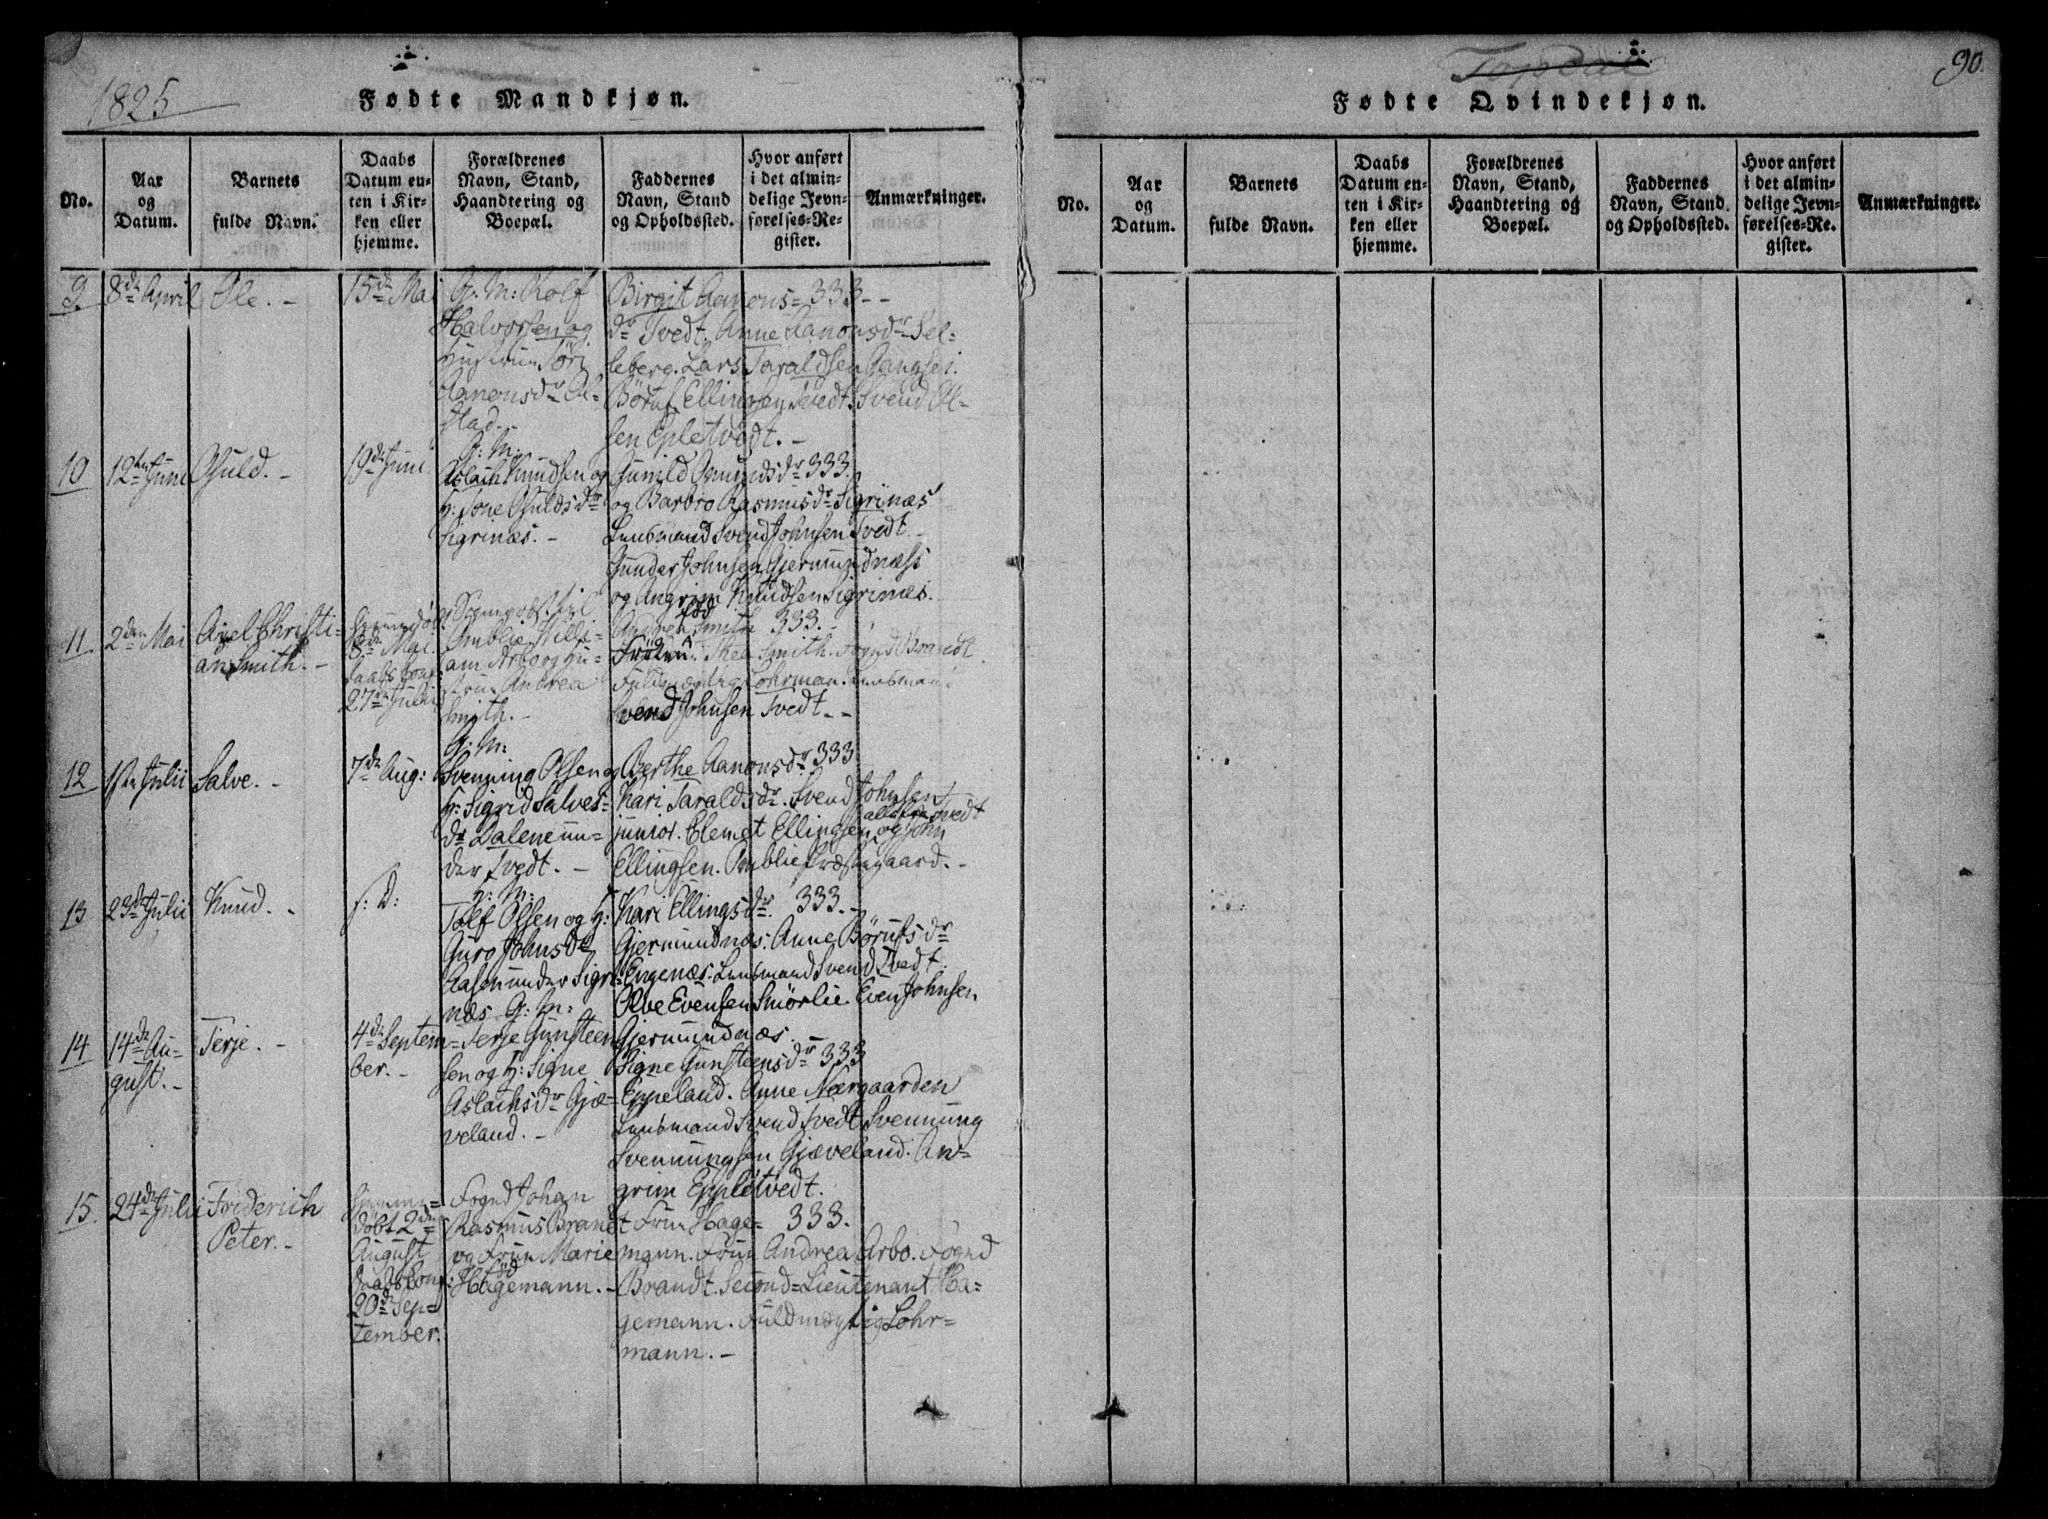 1825
Fødte Mandkjøn.
No.
Aar
og
Datum.
Barnets
fulde Navn.
Daabs
Datum en-
ten i Kir-
ken eller
hjemme.
Forældrenes
Navn, Stand,
Haandtering og
Boepæl.
Faddernes
Navn, Stand
og Opholdssted.
Hvor anført
i det almin-
delige Jevn-
førelses-Re-
gister.
Anmærkninger.
9
8de April
Ole. -
15de Mai
G: M: Rolf
Halvorsen og
Hustrue Siri
Aanonsdr
stad.-
Birgit Aanons= 333--
dr Tvedt. Anne Aanonsdr Sel=
leberg. Lars Taraldsen
Børuf Ellingsen Tvedt. Svend Ol=
sen Epletvedt. -
10
12te Juni
Gjuld. -
19de Juni
G: M:
Aslach Knudsen og
H: Tone Gjuldsdr
Sigrinæs. -
Gunild Omundsdr 333.
og Barbro Rasmusdr Sigrinæs
Lensmand Svend Johnsen Tvedt.
Gunder Johnsen Gjermundnæss
og Angrim Knudsen Sigrinæs.
11.
2den Mai
Axel Christi-
an Smith. -
8de Mai.
27de Julii
Sognepræst til
Omblie Willi-
am Arbo og Hu-
strue Andrea
fød
Smith. -
Smith 333.-
Frøken Thea Smith. Foged Brandt
Fuldmægtig Lohrman. Lensmand
Svend Johnsen Tvedt. -
12
1ste Julii
Salve. -
7de Aug:
G: M:
Svenning Olsen og
H: Sigrid Salves=
dr Dalene un=
der Tvedt. -
Berthe Aanonsdr 333
Kari Taraldsdr. Svend Johnsen
junior. Clemet Ellingsen alle fra Tvedt og John
Ellingsen. Omblie Præstegaard. -
13
23de Julii
Knud. -
s: D:
G: M:
Tolf Olsen og H:
Guro Johnsdr
Aasen under Sigri-
næs
Kari Ellingsdr. 333.-
Gjermundnæs: Anne Børufsdr
Engenæs. Lensmand Svend Tvedt.
Olve Evensen Smörlie. Even Johnsen
Gjermundnæs.
14
14de Au-
gust. -
Terje. -
4de Septem=
ber. -
G: M:
Terje Gunsteen
sen og H: Signe
Aslachsdr Gjæ=
veland. -
Signe Gunsteensdr 333
Eppeland. Anne Nærgaarden
Lensmand Svend Tvedt Svennung
Svennungsen Gjæveland. An=
grim Eppletvedt.
15.
24de Julii
Friderich
Peter. -
døbt 2den
August
20de Sep=
tember.
Fogd Johan
Rasmus Brandt
og Frue Marie
fød
Hagemann. -
Frue Hage= 333.
mann. Frue Andrea Arbo. Fogd
Brandt. Second=Lieutenant Ha-
gemann. Fuldmægtig Lohr=
mann. -
Topdal
90.
Fødte Qvindekjøn.
No.
Aar
og
Datum.
Barnets
fulde Navn.
Daabs
Datum en-
ten i Kir-
ken eller
hjemme.
Forældrenes
Navn, Stand,
Haandtering og
Boepæl.
Faddernes
Navn, Stand
og Opholdssted.
Hvor anført
i det almin-
delige Jevn-
førelses-Re-
gister.
Anmærkninger.